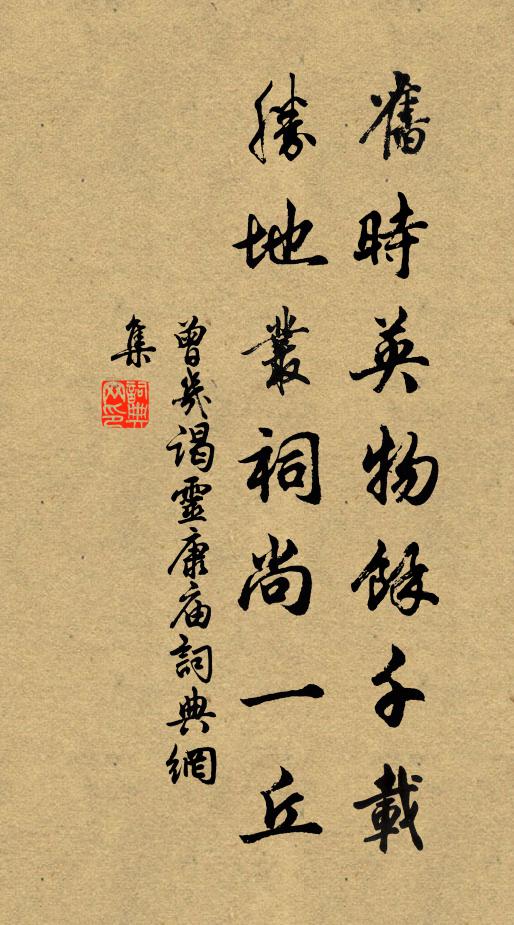 舊時英物餘千載
勝地叢祠尚一丘
曾幾謁靈康庙詞典網
集
詞典網印